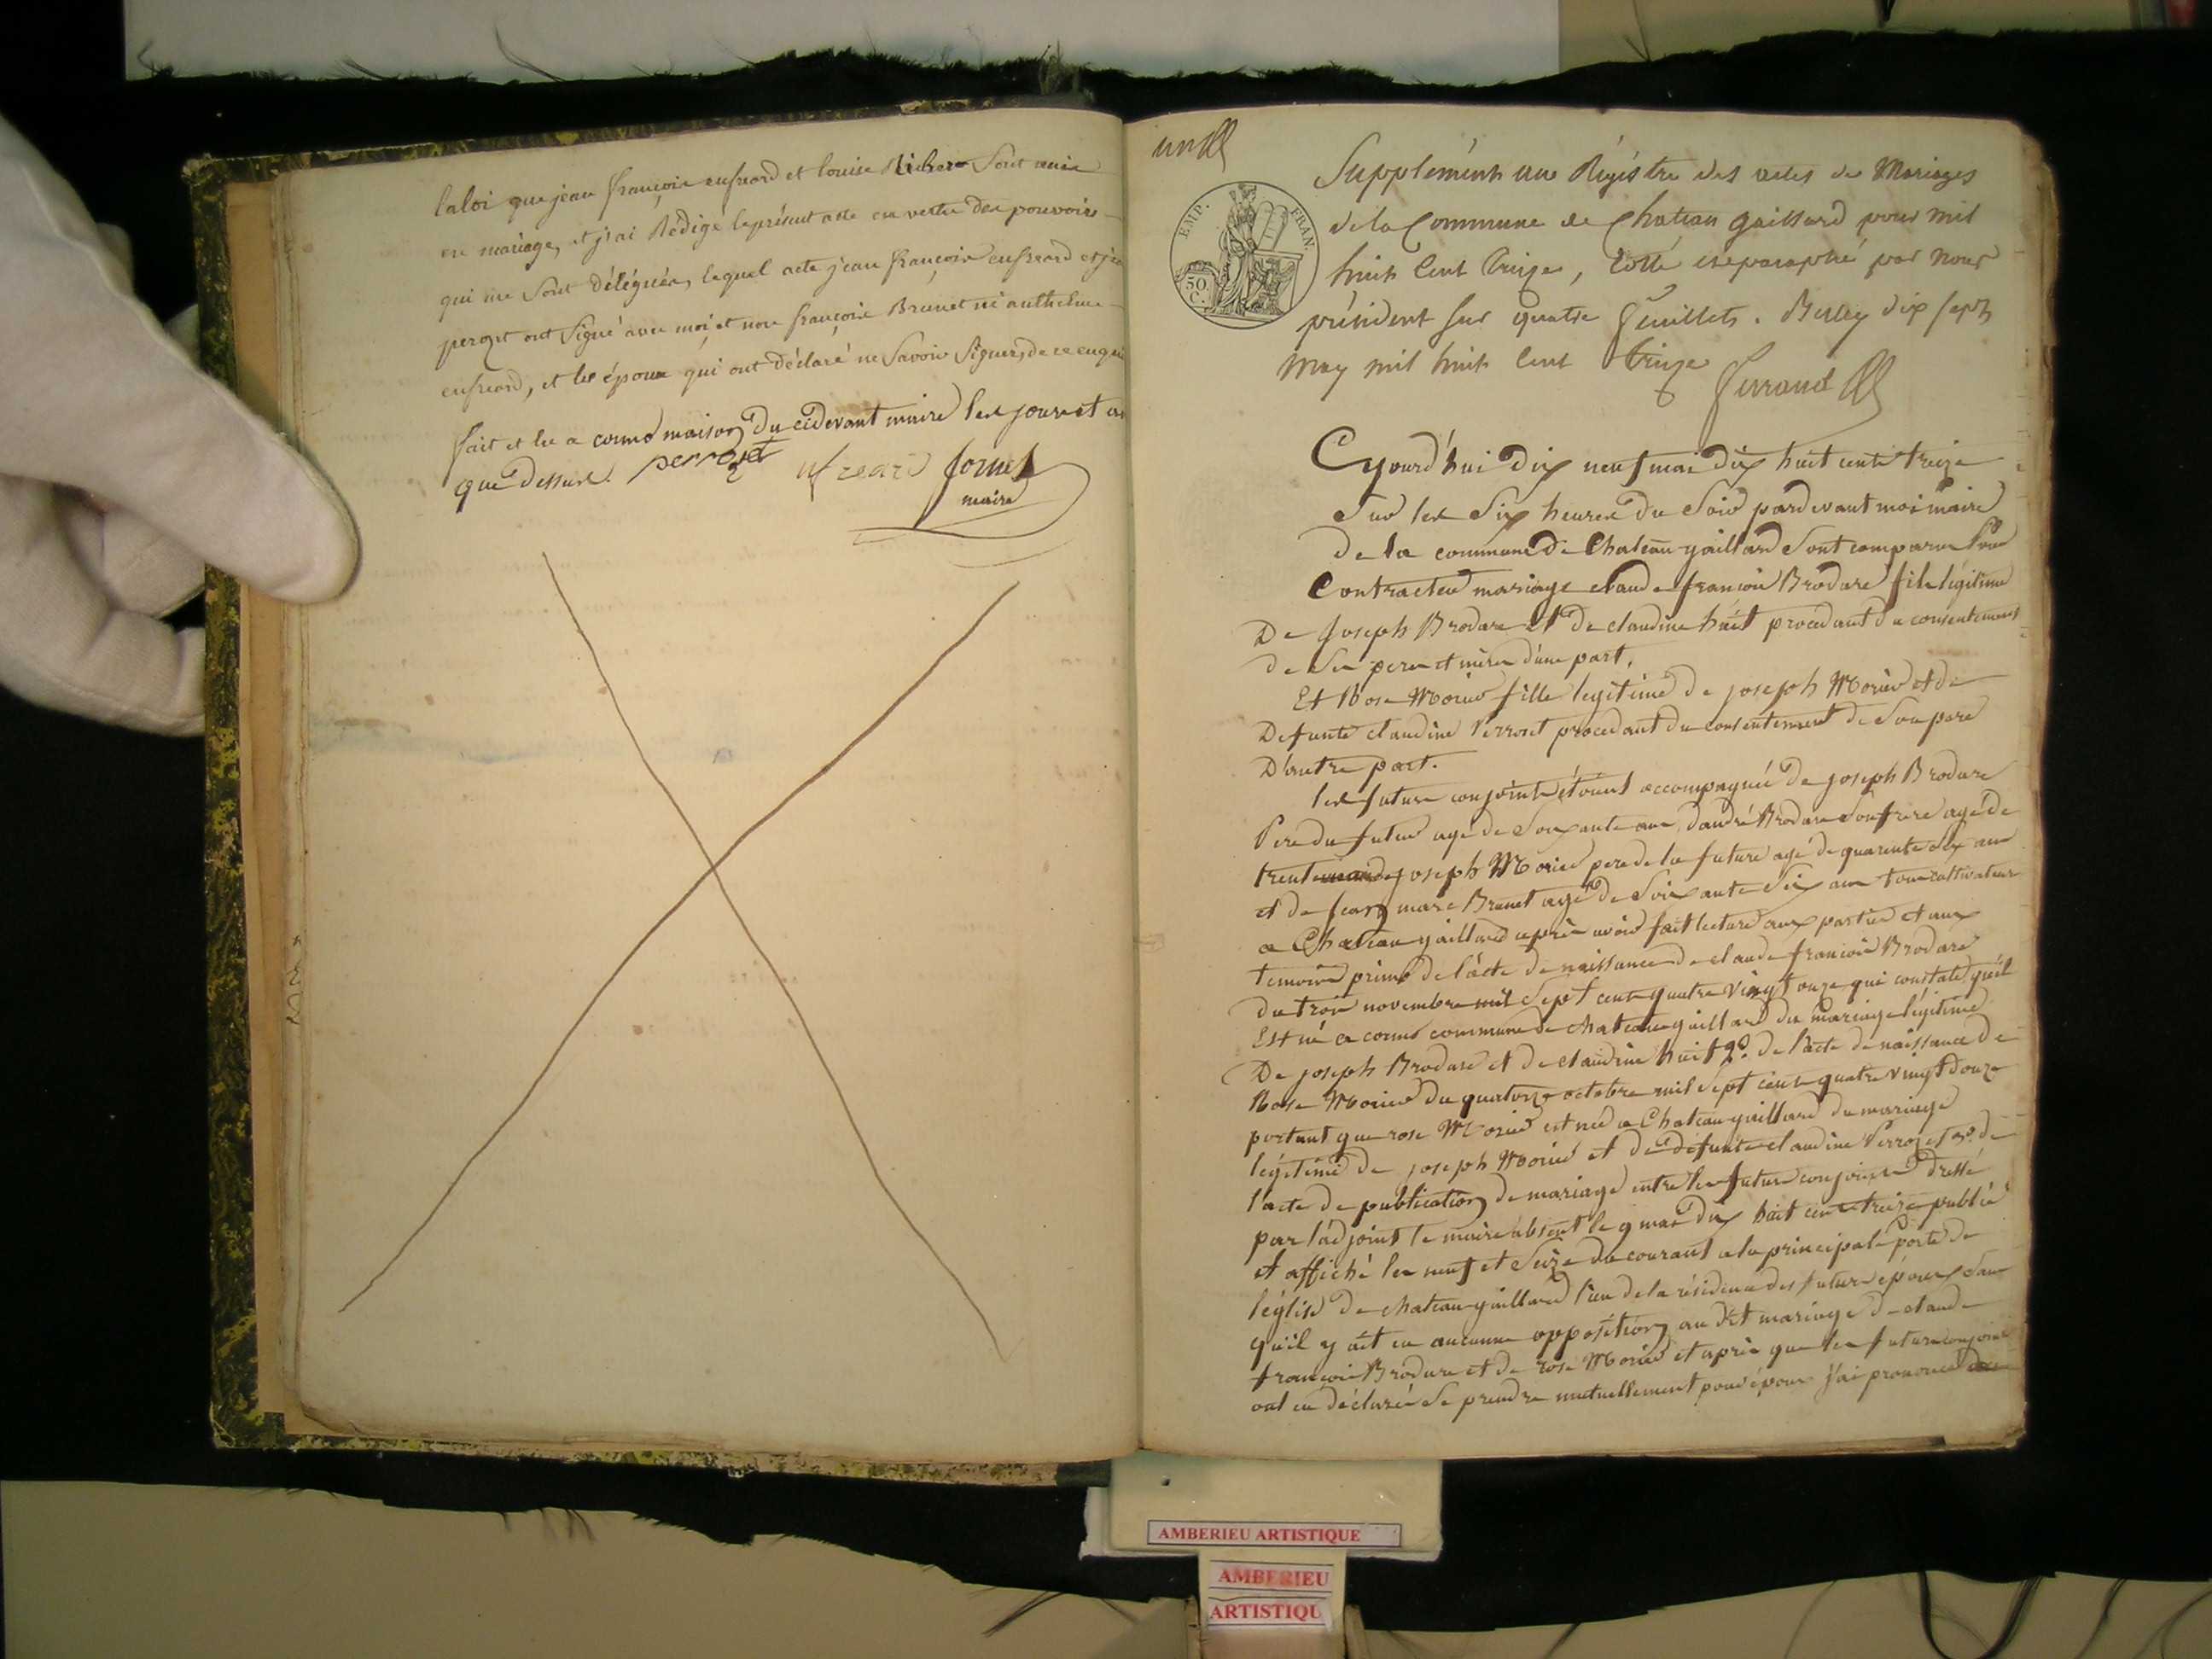 la loi que jean françois enfreard et louise Richere sont unis
en mariage, et j'ai Rédigé le présent acte en vertu des pouvoirs
qui me sont délégués, lequel acte jean françois enfreard et jean
perozet ont signé avec moi, et non françois Brunet ni anthelme
enfreard, et les époux qui ont déclaré ne savoir signer, de ce enquis
fait et lu a cormoz maison du cidevant maire les jour et an
que dessus. perrozet enfreard fornet
maire
un
Supplément au Régistre des actes de Mariages
de la Commune de Chateau gaillard pour mil
huit Cent treize, cotté et paraphé par nous
président sur quatre feuillets. Belley dix sept
may mil huit Cent treize
Ferrand
EMP. FRAN.
50 C.
Cejourd'hui dix neuf mai dix huit cents treize
sur les six heures du soir pardevant moi maire
de la commune de Chateau-gaillard sont comparus pour
Contracter mariage claude françois Brodare fils légitime
De Joseph Brodare et De claudine huit procedant du consentement
de ses pere et mère d'une part,
Et Rose Morier fille legitime de joseph Morier et de
Defunte claudine Perroset procedant du consentement de son pere
D'autre part.
les futurs conjoints étants accompagnés De joseph Brodare
Pere du futur agé de soixante ans, d'andré Brodare son frere agé de
trente joseph Morier pere de la future agé de quarente six ans
et de jean marc Brunet agé de soixante six ans tous cultivateurs
a Chateau gaillard après avoir fait lecture aux parties et aux
temoins primo de l'acte de naissance de claude françois Brodare
du trois novembre mil sept cents quatre vingt onze qui constate qu'il
Est né a cormoz commune de chateau gaillard du mariage légitime
De joseph Brodare et de claudine huit 2°. de l'acte de naissance de
Rose Morier du quatorze octobre mil sept cents quatre vingt douze
portant que rose Morier est née a Chateau gaillard du mariage
légitime de joseph Morier et de defunte claudine Perrozet 3°. de
l'acte de publication de mariage entre les futurs conjoints dressé
par l'adjoint le maire absent le 9 mai dix huit cents treize publié
et affiché les neuf et seize du courant a la principale porte de
l'église de chateau-gaillard lieu de la résidence des futurs époux sans
qu'il y ait eu aucunne opposition au dit mariage de claude
françois Brodare et de rose Morier et après que les futurs conjoints
ont eu déclarés se prendre mutuellement pour époux j'ai prononcé
AMBERIEU ARTISTIQUE
AMBERIEU
ARTISTIQU